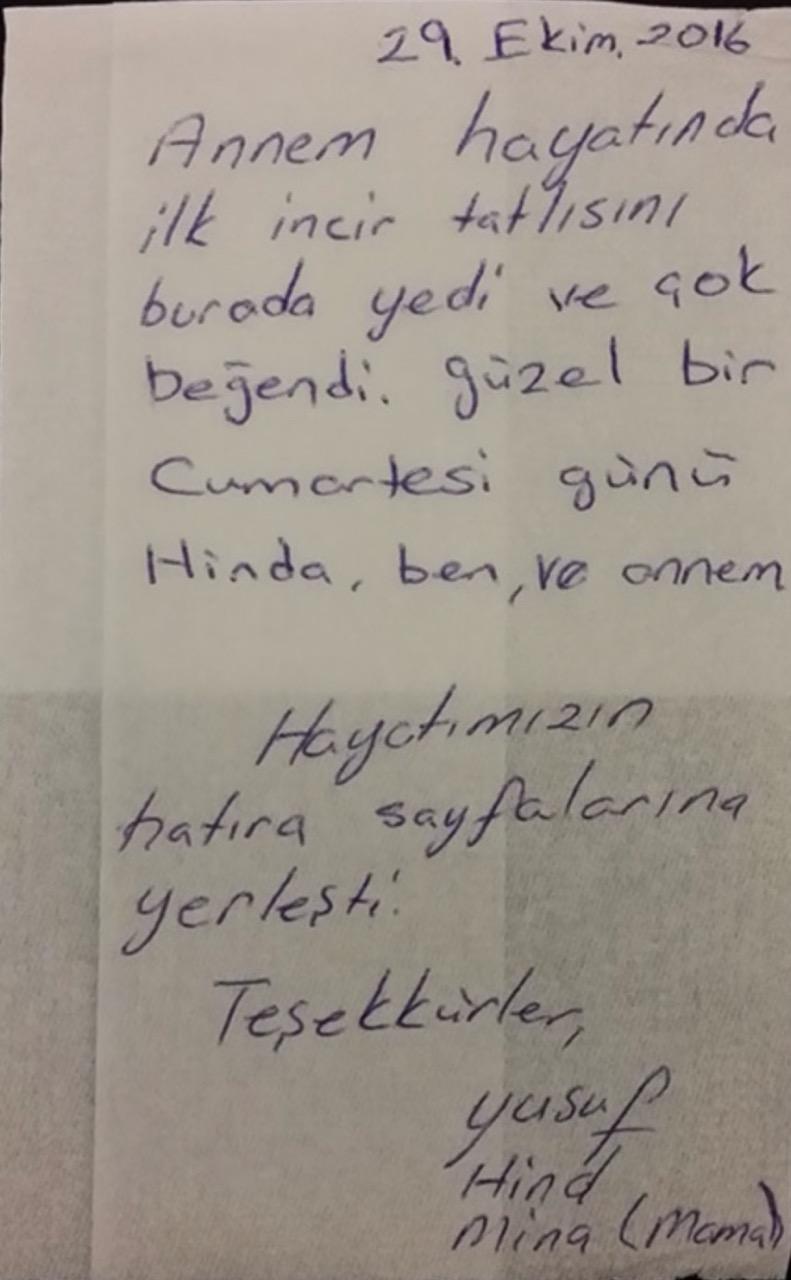 29. Ekim. 2016
Annem hayatında
ilk incir tatlısını
burada yedi ve çok
beğendi. güzel bir
Cumartesi günü
Hinda, ben, ve annem
Hayatımızın
hatıra sayfalarına
yerleşti.
Teşekkürler,
yusuf
Hind
Mina (Mama)